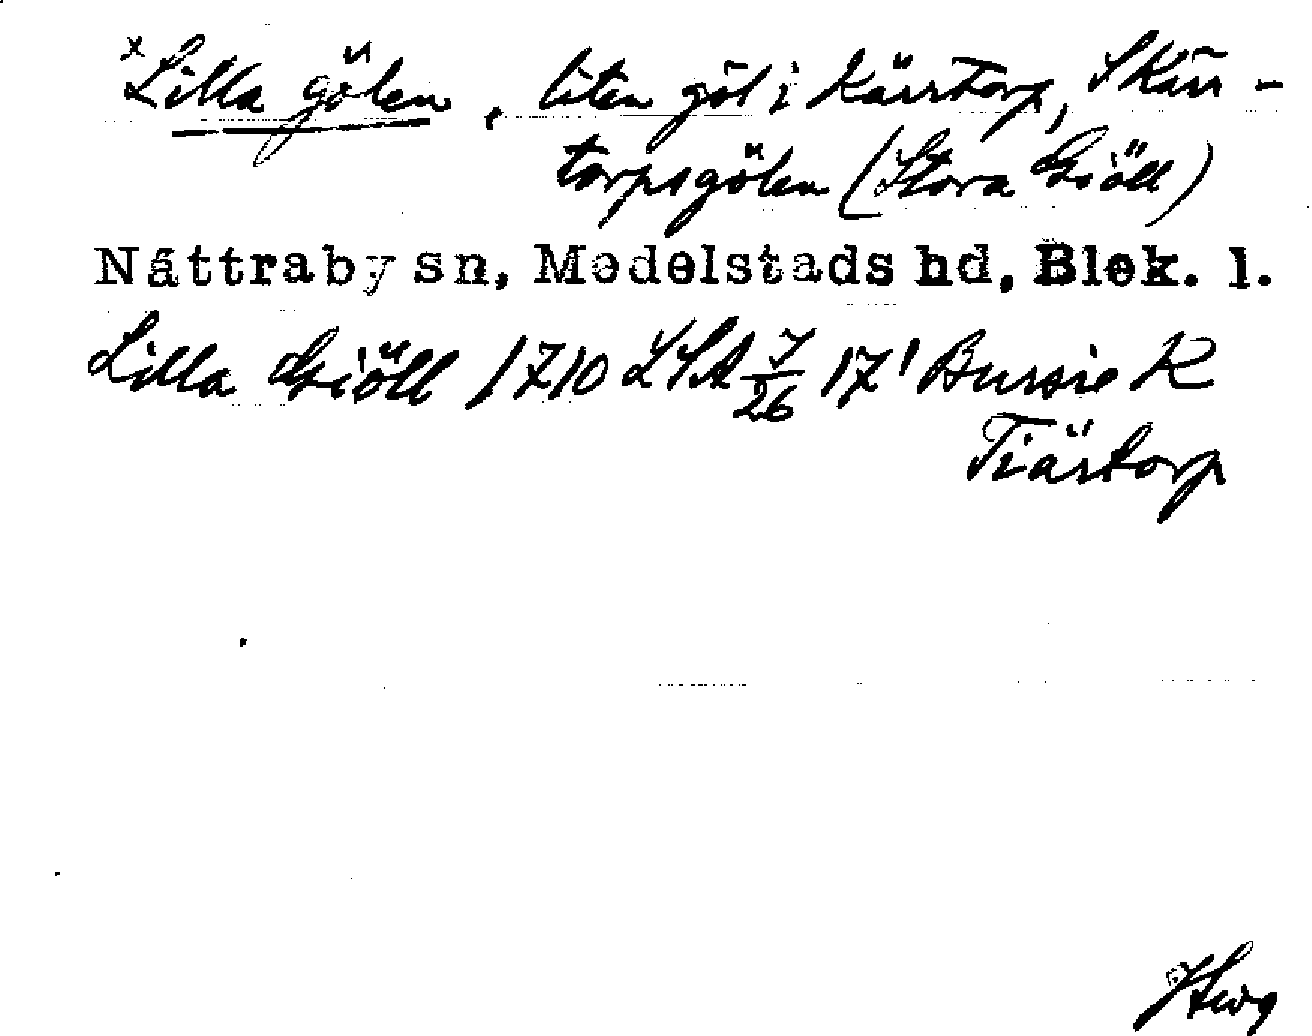 x Lilla gölen, liten göl i Kärrtorp, S Kärr-
torpsgölen (Stora Giöll)
Nättraby sn, Medelstads hd, Blek. l.
Lilla Giöll 1710 LSA 7/26 17 1 K
Tiärtorp